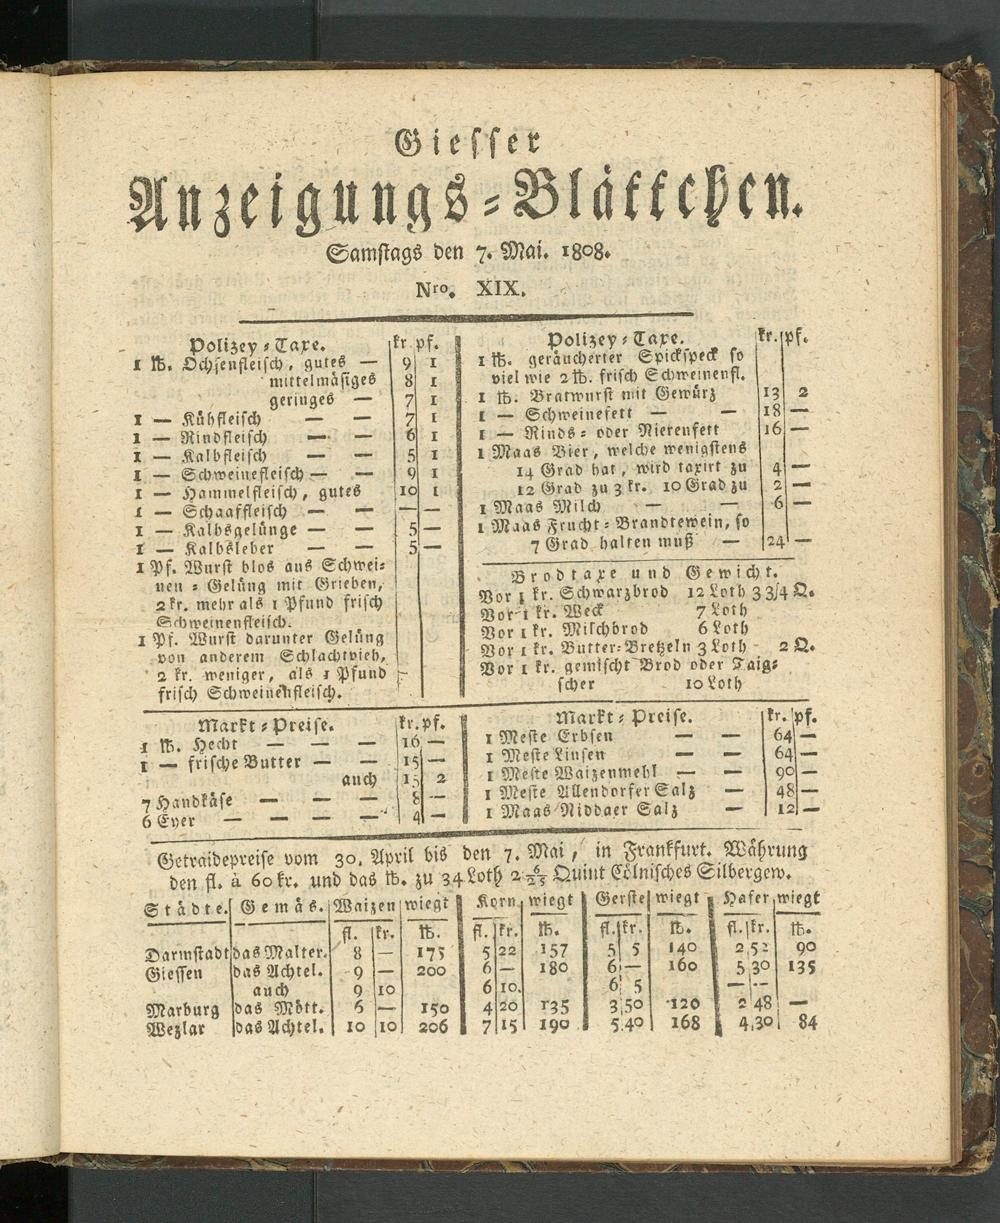 Giesser
Anzeigungs-Blättchen.
Samstags den 7. Mai. 1808.
Nro. XIX.
Polizey-Taxe. kr. pf.
1 ℔. Ochsenfleisch, gutes — 9 1
mittelmäsiges 8 1
geringes — 7 1
1 — Kühfleisch — — 7 1
1 — Rindfleisch — — 6 1
1 — Kalbfleisch — — 5 1
1 — Schweinefleisch — — 9 1
1 — Hammelfleisch, gutes 10 1
1 — Schaaffleisch — — — —
1 — Kalbsgelünge — — 5 —
1 — Kalbsleber — — 5 —
1 Pf. Wurst blos aus Schwei-
nen-Gelüng mit Grieben,
2 kr. mehr als 1 Pfund frisch
Schweinenfleisch.
1 Pf. Wurst darunter Gelüng
von anderem Schlachtvieh,
2 kr. weniger, als 1 Pfund
frisch Schweinenfleisch.
Polizey-Taxe. kr. pf.
1 ℔. geräucherter Spickspeck so
viel wie 2 ℔. frisch Schweinenfl.
1 ℔. Bratwurst mit Gewürz 13 2
1 — Schweinefett — — 18 —
1 — Rinds- oder Nierenfett 16 —
1 Maas Bier, welche wenigstens
14 Grad hat, wird taxirt zu 4 —
12 Grad zu 3 kr. 10 Grad zu 2 —
1 Maas Milch — — 6 —
1 Maas Frucht-Brandtewein, so
7 Grad halten muß — 24 —
Brodtaxe und Gewicht.
Vor 1 kr. Schwarzbrod 12 Loth 3 3/4 Q.
Vor 1 kr. Weck 7 Loth
Vor 1 kr. Milchbrod 6 Loth
Vor 1 kr. Butter-Bretzeln 3 Loth 2 Q.
Vor 1 kr. gemischt Brod oder Taig-
scher 10 Loth
Markt-Preise. kr. pf.
1 ℔. Hecht — — — 16 —
1 — frische Butter — — 15 —
auch 15 2
7 Handkäse — — — 8 —
6 Eyer — — — — 4 —
Markt-Preise. kr. pf.
1 Meste Erbsen — — 64 —
1 Meste Linsen — — 64 —
1 Meste Waizenmehl — — 90 —
1 Meste Allendorfer Salz — 48 —
1 Maas Niddaer Salz — 12 —
Getraidepreise vom 30. April bis den 7. Mai, in Frankfurt. Währung
den fl. à 60 kr. und das ℔. zu 34 Loth 2 6/25 Quint Cölnisches Silbergew.
Städte. Gemäs. Waizen wiegt Korn wiegt Gerste wiegt Hafer wiegt
fl. kr. ℔. fl. kr. ℔. fl. kr. ℔. fl. kr. ℔.
Darmstadt das Malter. 8 — 175 5 22 157 5 5 140 2 52 90
Giessen das Achtel. 9 — 200 6 — 180 6 — 160 5 30 135
auch 9 10 6 10. 6 5 — —
Marburg das Mött. 6 — 150 4 20 135 3 50 120 2 48 —
Wezlar das Achtel. 10 10 206 7 15 190 5 40 168 4 30 84